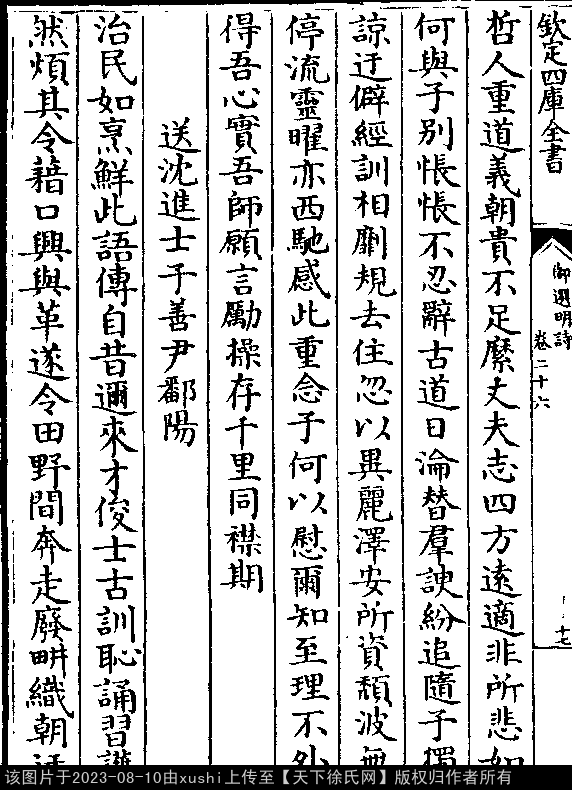 欽定四庫全書
御選明詩
卷二十六
十七
哲人重道義朝貴不足縻丈夫志四方遠適非所悲如
何與子別悵悵不忍辭古道日淪替羣諛紛追隨子獨
諒迂僻經訓相劘規去住忽以異麗澤安所資頹波無
停流靈曜亦西馳感此重念子何以慰爾知至理不外
得吾心實吾師願言勵操存千里同襟期
送沈進士子善尹鄱陽
治民如烹鮮此語傳自昔邇來才俊士古訓恥誦習
然煩其令藉口興與革遂令田野間奔走廢畊織朝
该图片于2023-08-10由xushi上传至【天下徐氏网】版权归作者所有